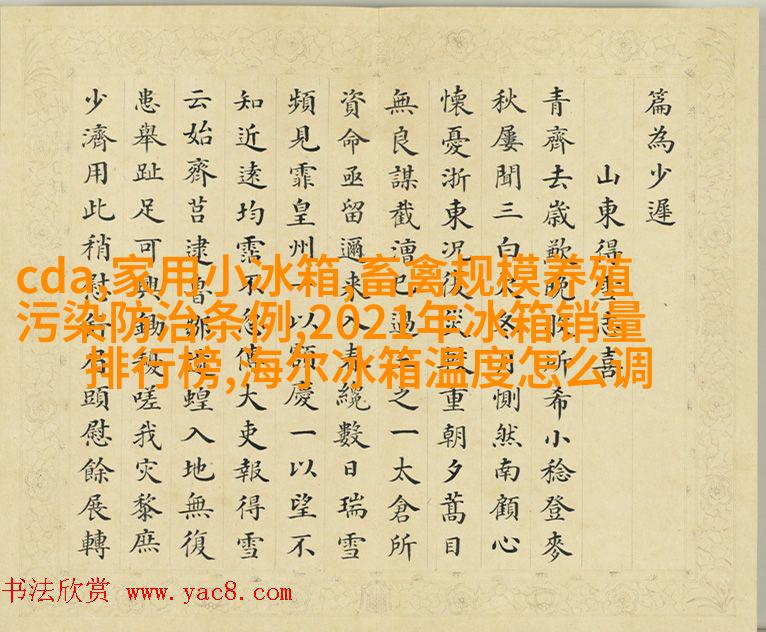 篇為少遲
山東得雪志喜
青齊去歲歉晚所希小稔登麥
秋屢聞三白冬惻然南顧心
懷憂浙東況復災重朝夕蒿目
無良謀截漕已過之一太倉所
資命亟留邇来入春纔數日瑞雪
頻見霏皇州一以慶一以望不
知近遠均霑不傳大吏報得雪
云始齊莒逮曹蝗入地無復
患舉趾足可興鋤耰嗟我災黎庶
少濟用此稍慰頭慰餘展轉
cda,家用小冰箱,畜禽规模养殖
污染防治条例,2021年冰箱销量
排行榜,海尔冰箱温度怎么调
书法欣赏 www.yac8.com